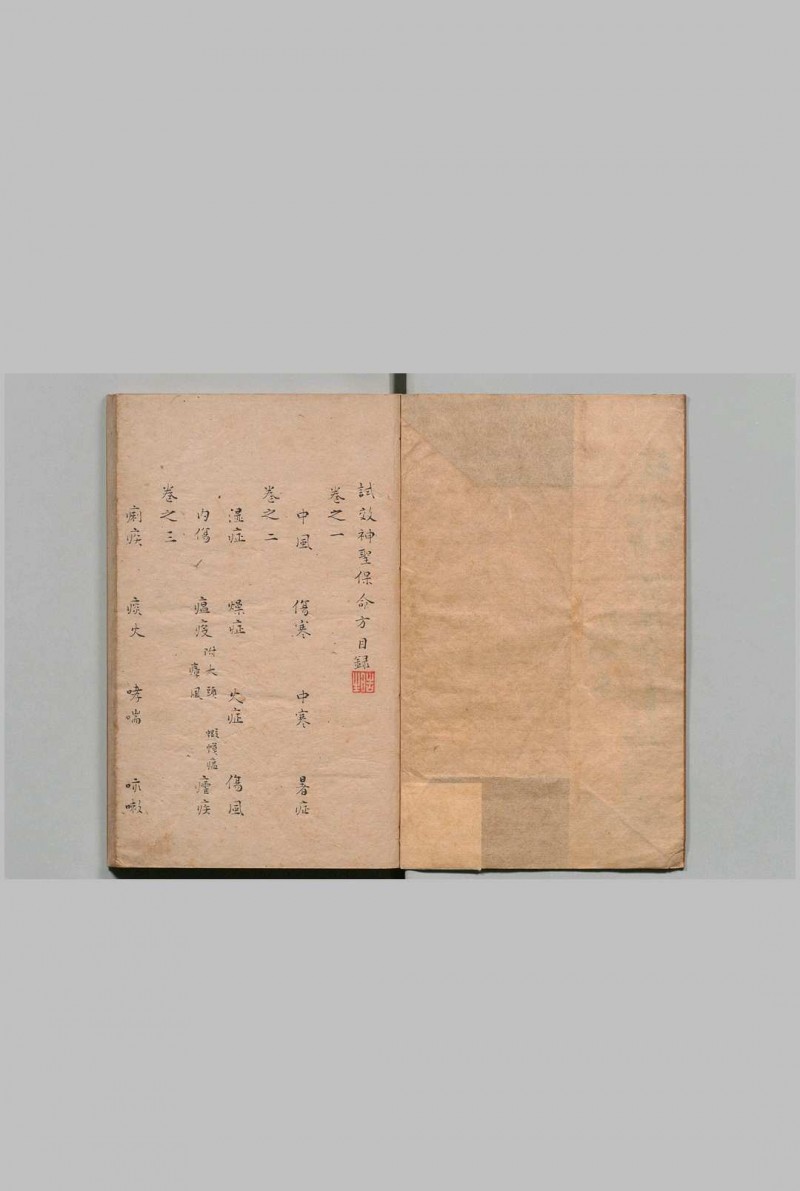 試效神聖保命方目録
卷之一
中風 傷寒 中寒 暑症
卷之二
濕症 燥症 火症 傷風
內傷 瘟疫 附大頭 瘟疾
卷之三
痢疾 痰火 哮喘 咳嗽